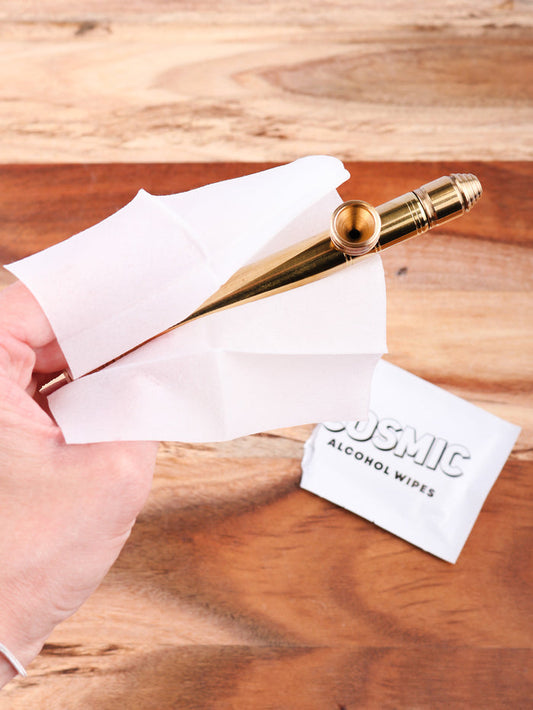 COSMIC
ALCOHOL WIPES